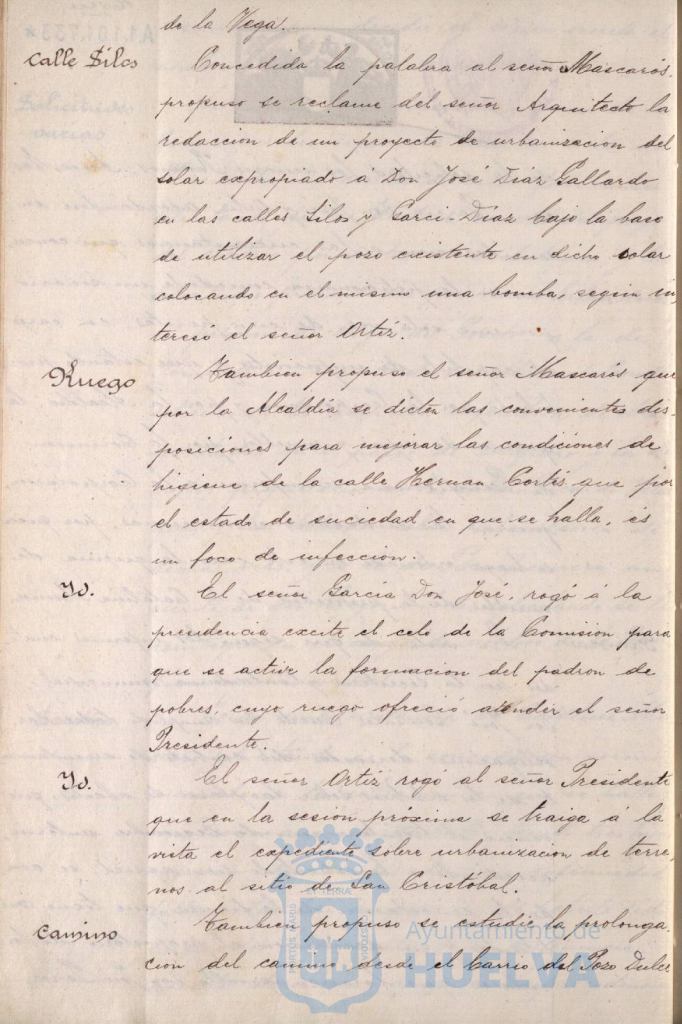 de la Vega.
Calle Silos
Concedida la palabra al señor Mascarós,
propuso se reclame del señor Arquitecto la
redaccion de un proyecto de urbanizacion del
solar expropiado á Don José Diaz Gallardo
en las calles Silos y Garci-Diaz bajo la base
de utilizar el pozo existente en dicho solar
colocando en el mismo una bomba, segun in
teresó el señor Ortiz.
Ruego
Tambien propuso el señor Mascarós que
por la Alcaldía se dicten las convenientes dis-
posiciones para mejorar las condiciones de
higiene de la calle Hernan Cortés que por
el estado de suciedad en que se halla, es
un foco de infeccion.
Yd.
El señor García Don José, rogó á la
presidencia excite el celo de la Comision para
que se active la formacion del padron de
pobres, cuyo ruego ofreció atender el señor
Presidente.
Yd.
El señor Ortiz rogó al señor Presidente
que en la sesion próxima se traiga á la
vista el expediente sobre urbanizacion de terre,
nos al sitio de San Cristóbal.
Camino
Tambien propuso se estudie la prolonga,
cion del camino desde el barrio del Pozo Dulce
Ayuntamiento de
HUELVA